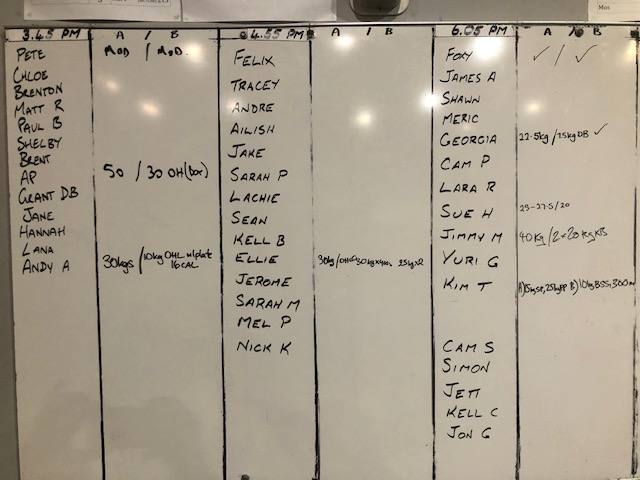 3.45 PM A / B
PETE MOD / MOD.
CHLOE
BRENTON
MATT R
PAUL B
SHELBY
BRENT
AP 50 / 30 OH (bar)
GRANT DB
JANE
HANNAH
LANA
ANDY A 30kgs / 10kg OHL w/plate
16 CAL
4.55 PM A / B
FELIX
TRACEY
ANDRE
AILISH
JAKE
SARAH P
LACHIE
SEAN
KELL B
ELLIE 30kg /
JEROME
SARAH M
MEL P
NICK K
6.05 PM A / B
FOXY ✓ / ✓
JAMES A
SHAWN
MERIC
GEORGIA 22.5kg / 7.5kg DB ✓
CAM P
LARA R
SUE H 25-27.5/20
JIMMY M 40kg / 2x20kg KB
YURI G
KIM T
CAM S
SIMON
JETT
KELL C
JON G
Mos